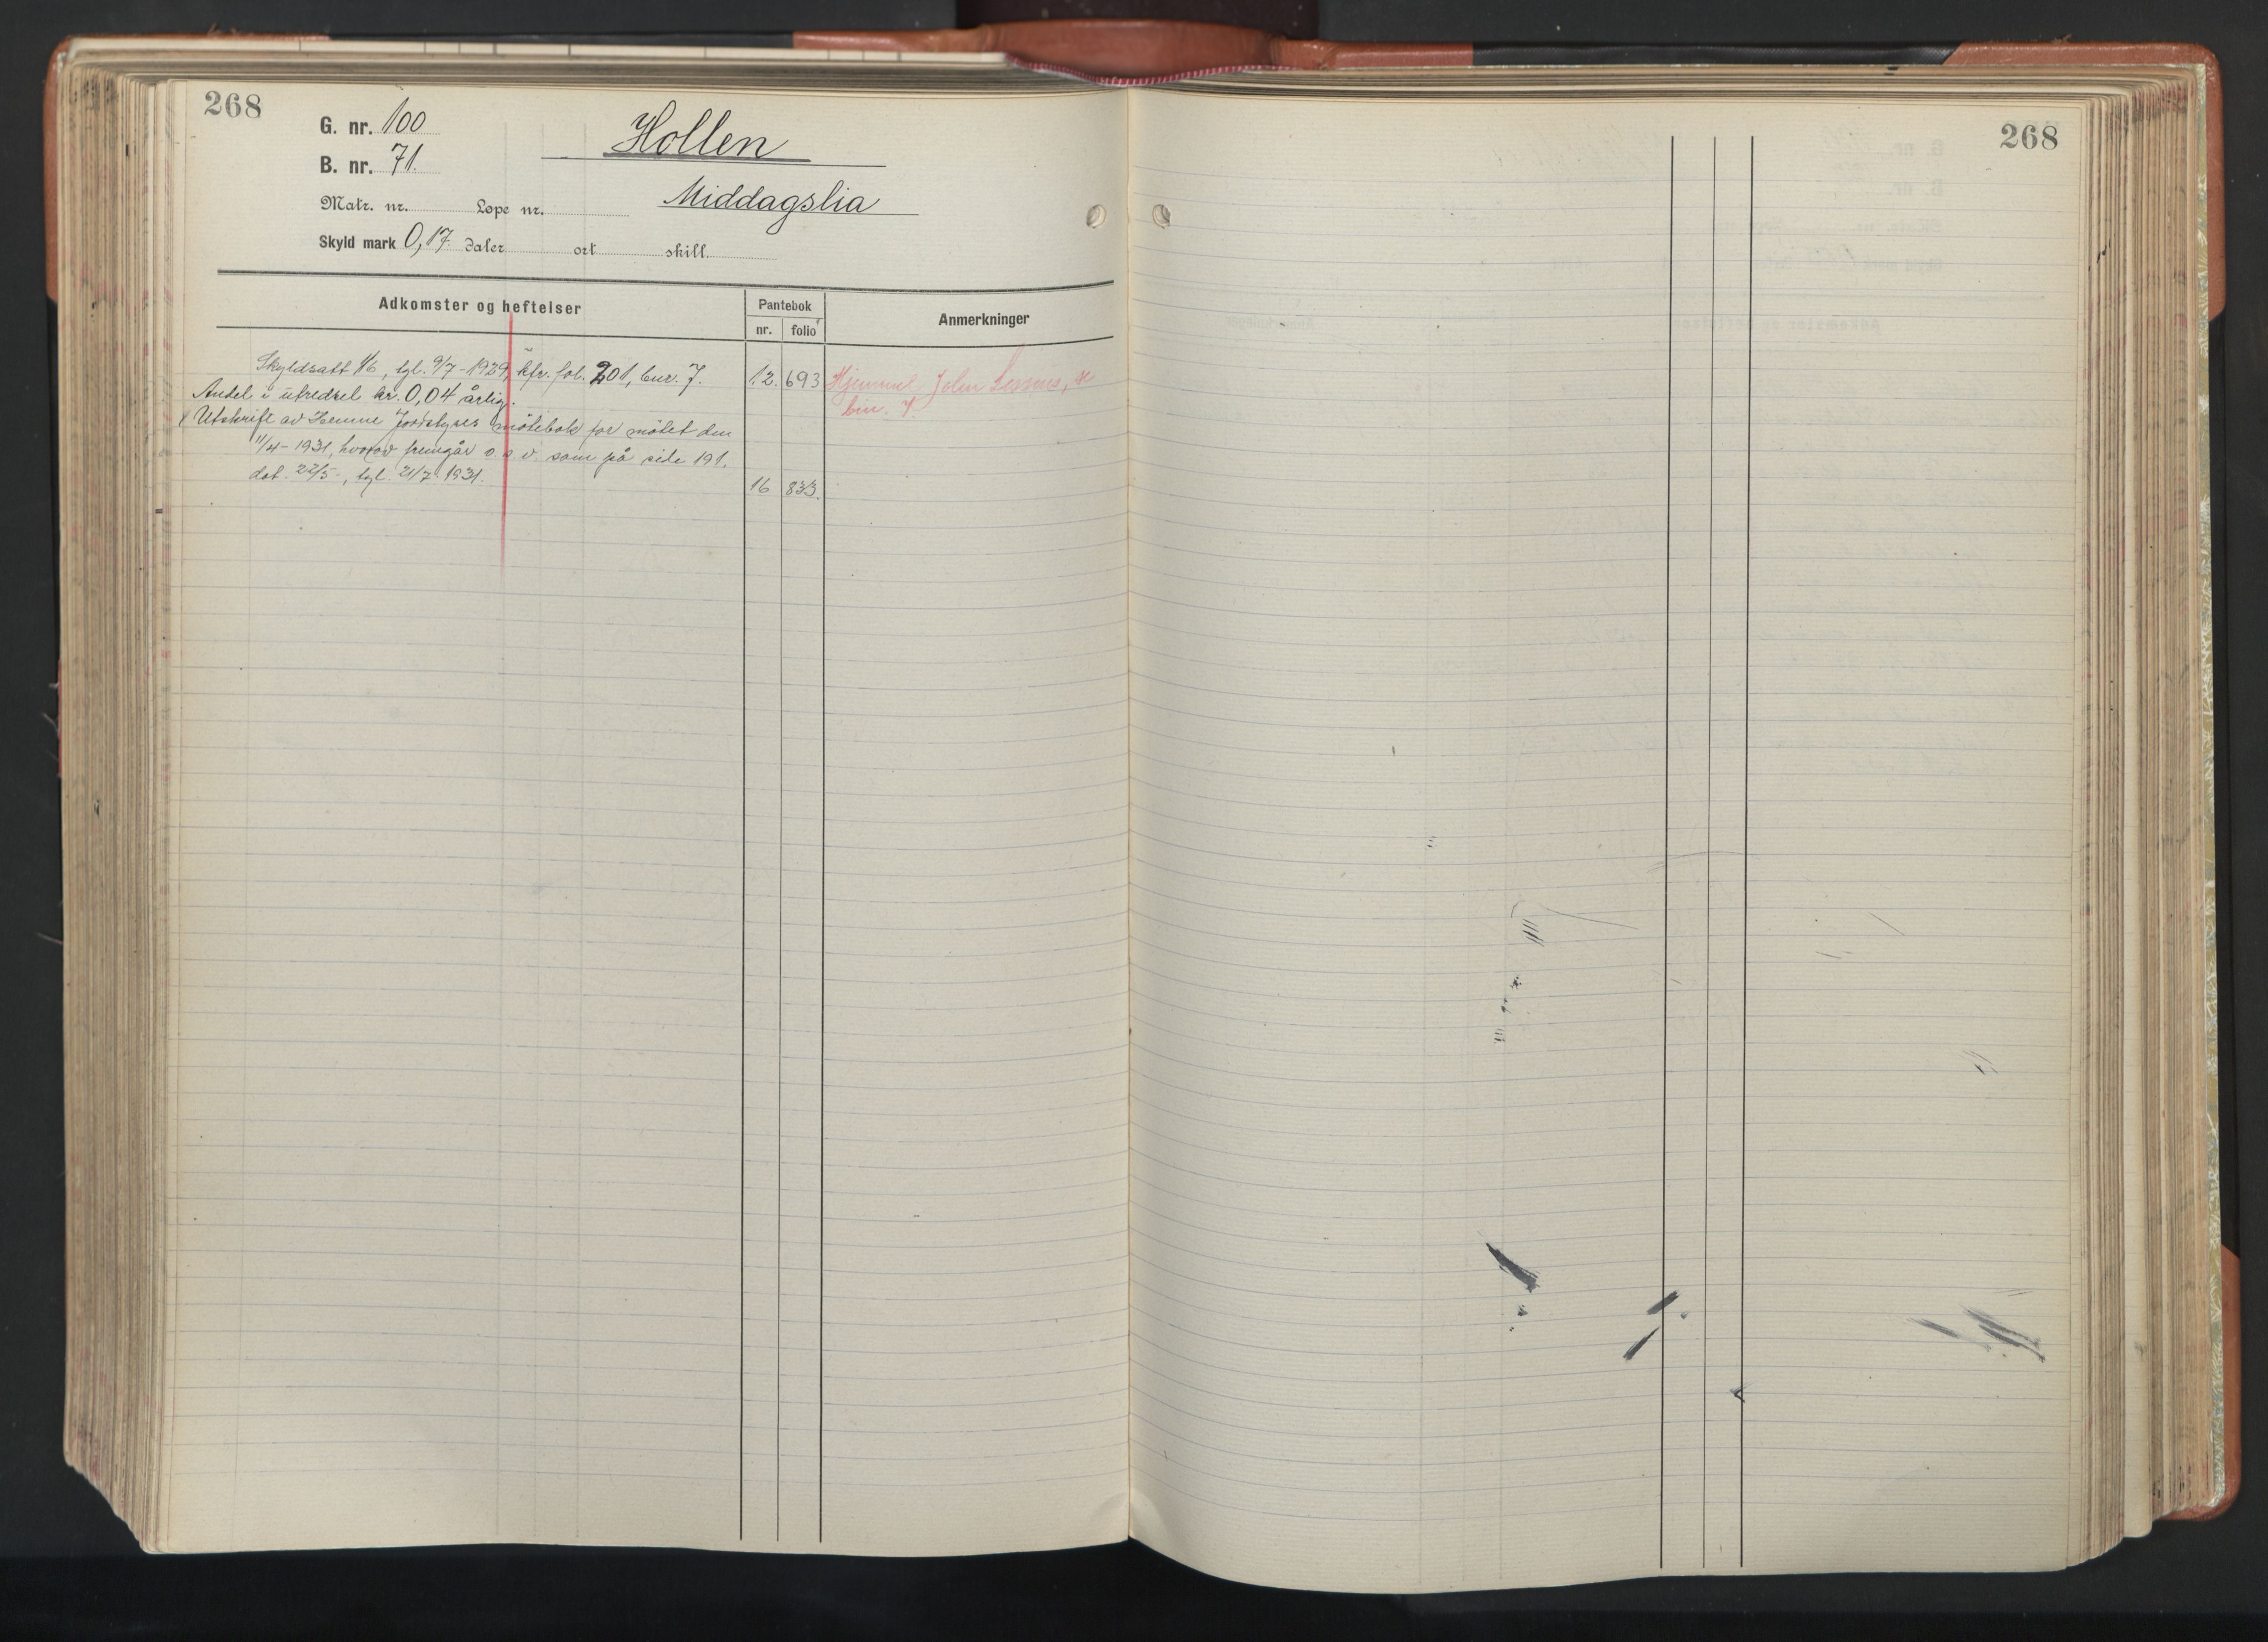 268
G. nr. 100
Hollen
B. nr. 71.
Matr. nr. Løpe nr.
Middagslia
Skyld mark 0,17 daler ort skill.
Adkomster og heftelser
Pantebok
nr. folio
Anmerkninger
Skyldsatt 1/6, tgl. 9/7-1929, kfr. fol. 201, bnr. 7. 12. 693
Andel i utredsel kr. 0,04 årlig.
Utskrift av Hemne Jordstyres møtebok for møtet den
11/4-1931, hvorav fremgår o.s.v. som på side 191.
dat. 22/5-, tgl. 21/7 1931. 16 833.
Hjemmel John
bnr. 7.
268